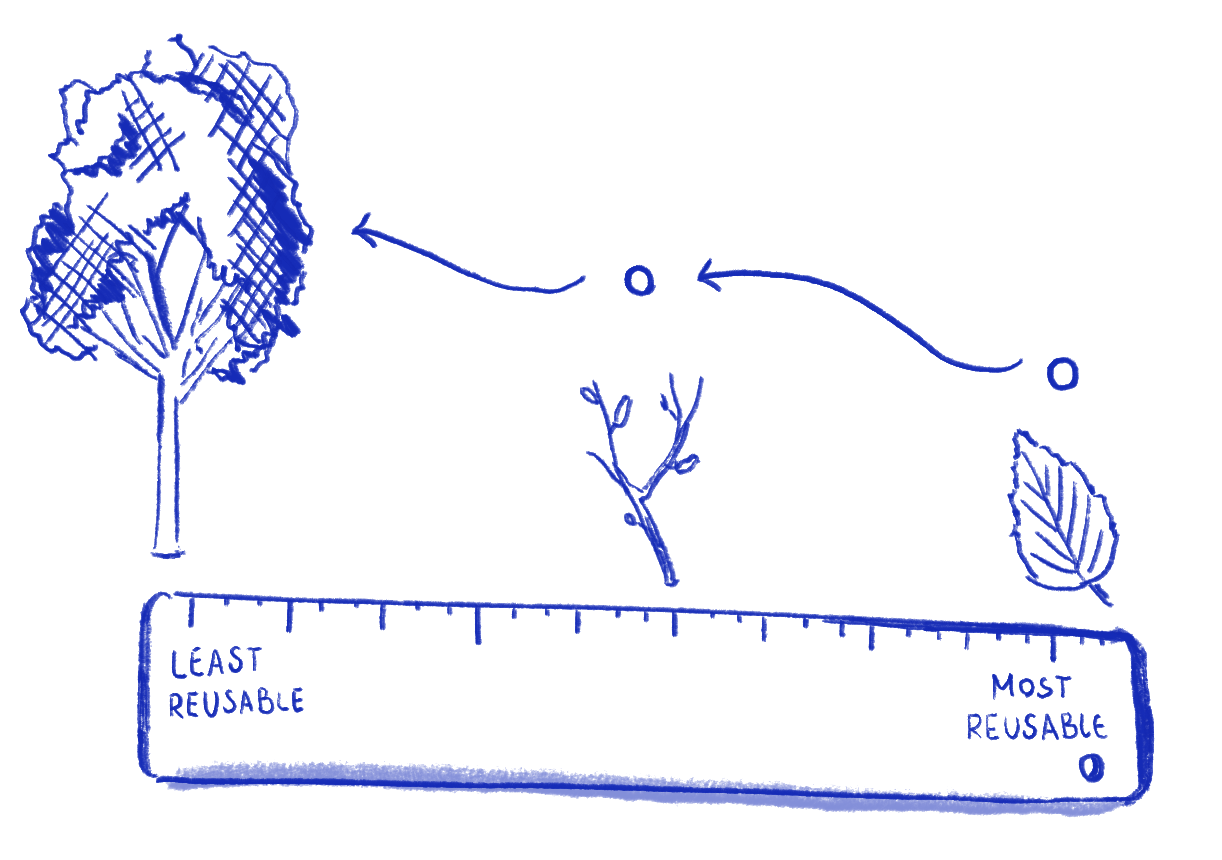 LEAST
REUSABLE
MOST
REUSABLE